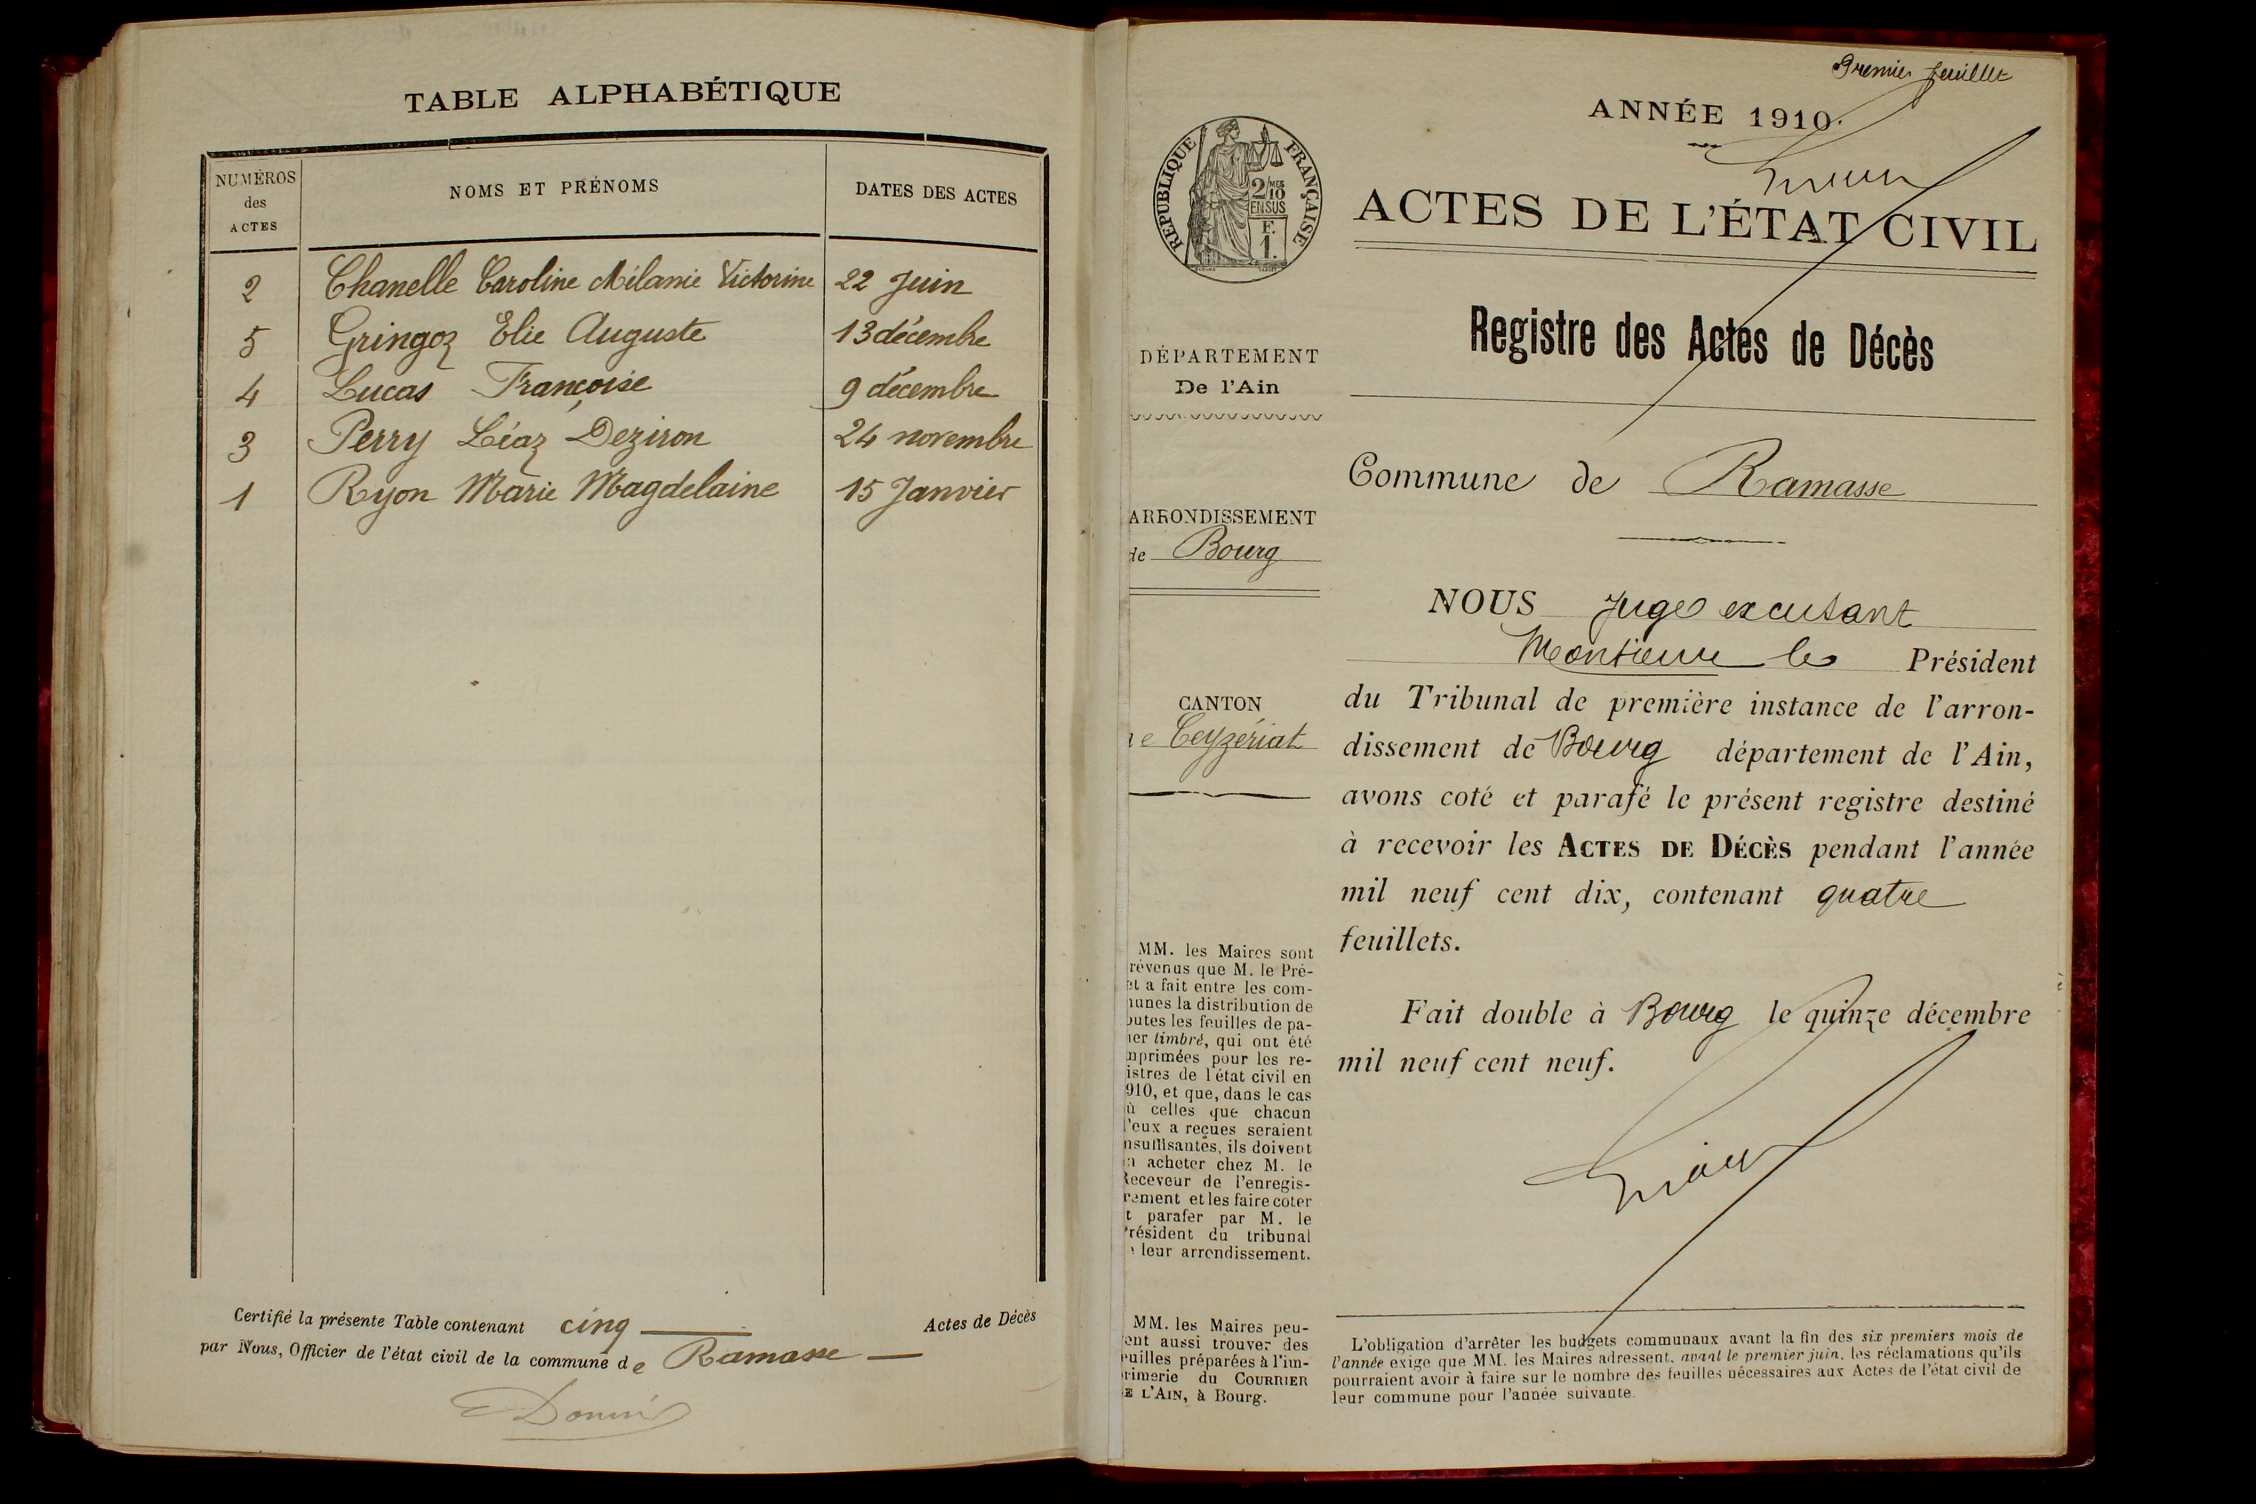 TABLE ALPHABÉTIQUE
NUMÉROS
des
ACTES
NOMS ET PRÉNOMS
DATES DES ACTES
2 Chanelle Caroline Mélanie Victorine 22 Juin
5 Gringoz Elie Auguste 13 décembre
4 Lucas Françoise 9 décembre
3 Perry Léaz Deziron 24 novembre
1 Ryon Marie Magdelaine 15 Janvier
Certifié la présente Table contenant cinq Actes de Décès
par Nous, Officier de l'état civil de la commune de Ramasse
Premier feuillet
ANNÉE 1910.
RÉPUBLIQUE FRANÇAISE
2/10 MES
EN SUS
F.
1.
ACTES DE L'ÉTAT CIVIL
Registre des Actes de Décès
DÉPARTEMENT
De l'Ain
Commune de Ramasse
ARRONDISSEMENT
de Bourg
CANTON
e Ceyzériat
NOUS Juge excusant
Monsieur le Président
du Tribunal de première instance de l'arron-
dissement de Bourg département de l'Ain,
avons coté et parafé le présent registre destiné
à recevoir les ACTES DE DÉCÈS pendant l'année
mil neuf cent dix, contenant quatre
feuillets.
Fait double à Bourg le quinze décembre
mil neuf cent neuf.
MM. les Maires sont
révenus que M. le Pré-
et a fait entre les com-
munes la distribution de
outes les feuilles de pa-
ier timbré, qui ont été
mprimées pour les re-
istres de l'état civil en
910, et que, dans le cas
ù celles que chacun
d'eux a reçues seraient
nsuffisantes, ils doivent
n acheter chez M. le
Receveur de l'enregis-
rement et les faire coter
t parafer par M. le
Président du tribunal
e leur arrondissement.
MM. les Maires peu-
ent aussi trouver des
euilles préparées à l'im-
rimerie du COURRIER
E L'AIN, à Bourg.
L'obligation d'arrêter les budgets communaux avant la fin des six premiers mois de
l'année exige que MM. les Maires adressent, avant le premier juin, les réclamations qu'ils
pourraient avoir à faire sur le nombre des feuilles nécessaires aux Actes de l'état civil de
leur commune pour l'année suivante.